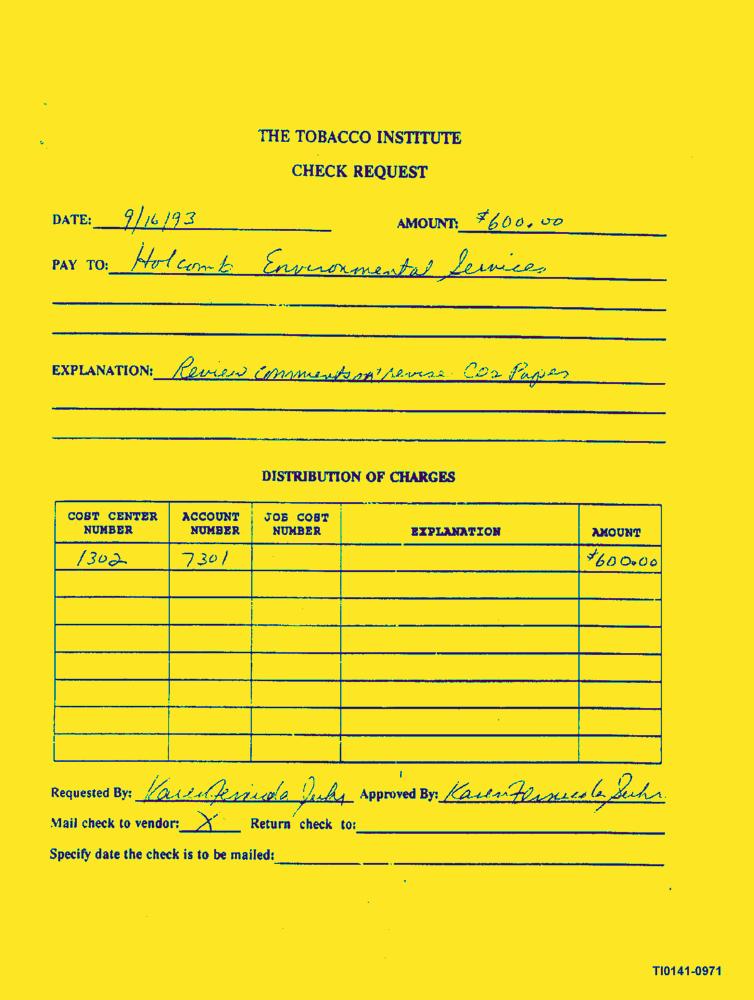 THE TOBACCO INSTITUTE
CHECK REQUEST
DATE: 9/16/93 AMOUNT: $600.00
PAY TO: Holcomb Environmental Services
EXPLANATION: Review comments revise CO2 Paper
DISTRIBUTION OF CHARGES
COST CENTER NUMBER ACCOUNT NUMBER JOB COST NUMBER EXPLANATION AMOUNT
1302 7301 $600.00
Requested By: Karen Approved By: Karen
Mail check to vendor: X Return check to:
Specify date the check is to be mailed:
TI0141-0971